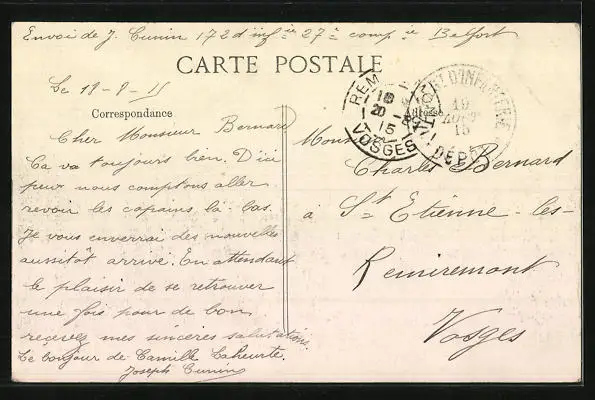 Envoi de J. Cunin 172 d'inf ie 27e comp ie Belfort
CARTE POSTALE
Le 19-8-15
Correspondance
Cher Monsieur Bernard
Ça va toujours bien. D'ici
peux nous comptons aller
revoir les copains là-bas.
Je vous enverrai des nouvelles
aussitôt arrivé. En attendant
le plaisir de se retrouver
une fois pour de bon
recevez mes sincères salutations.
Le bonjour de Camille Laheurte.
Joseph Cunin
REM
18
20 -8
15
VOSGES
D'INFANTERIE
19
AOUT
15
DÉPÔT
Adresse
Charles Bernard
à St Etienne-les-
Remiremont
Vosges